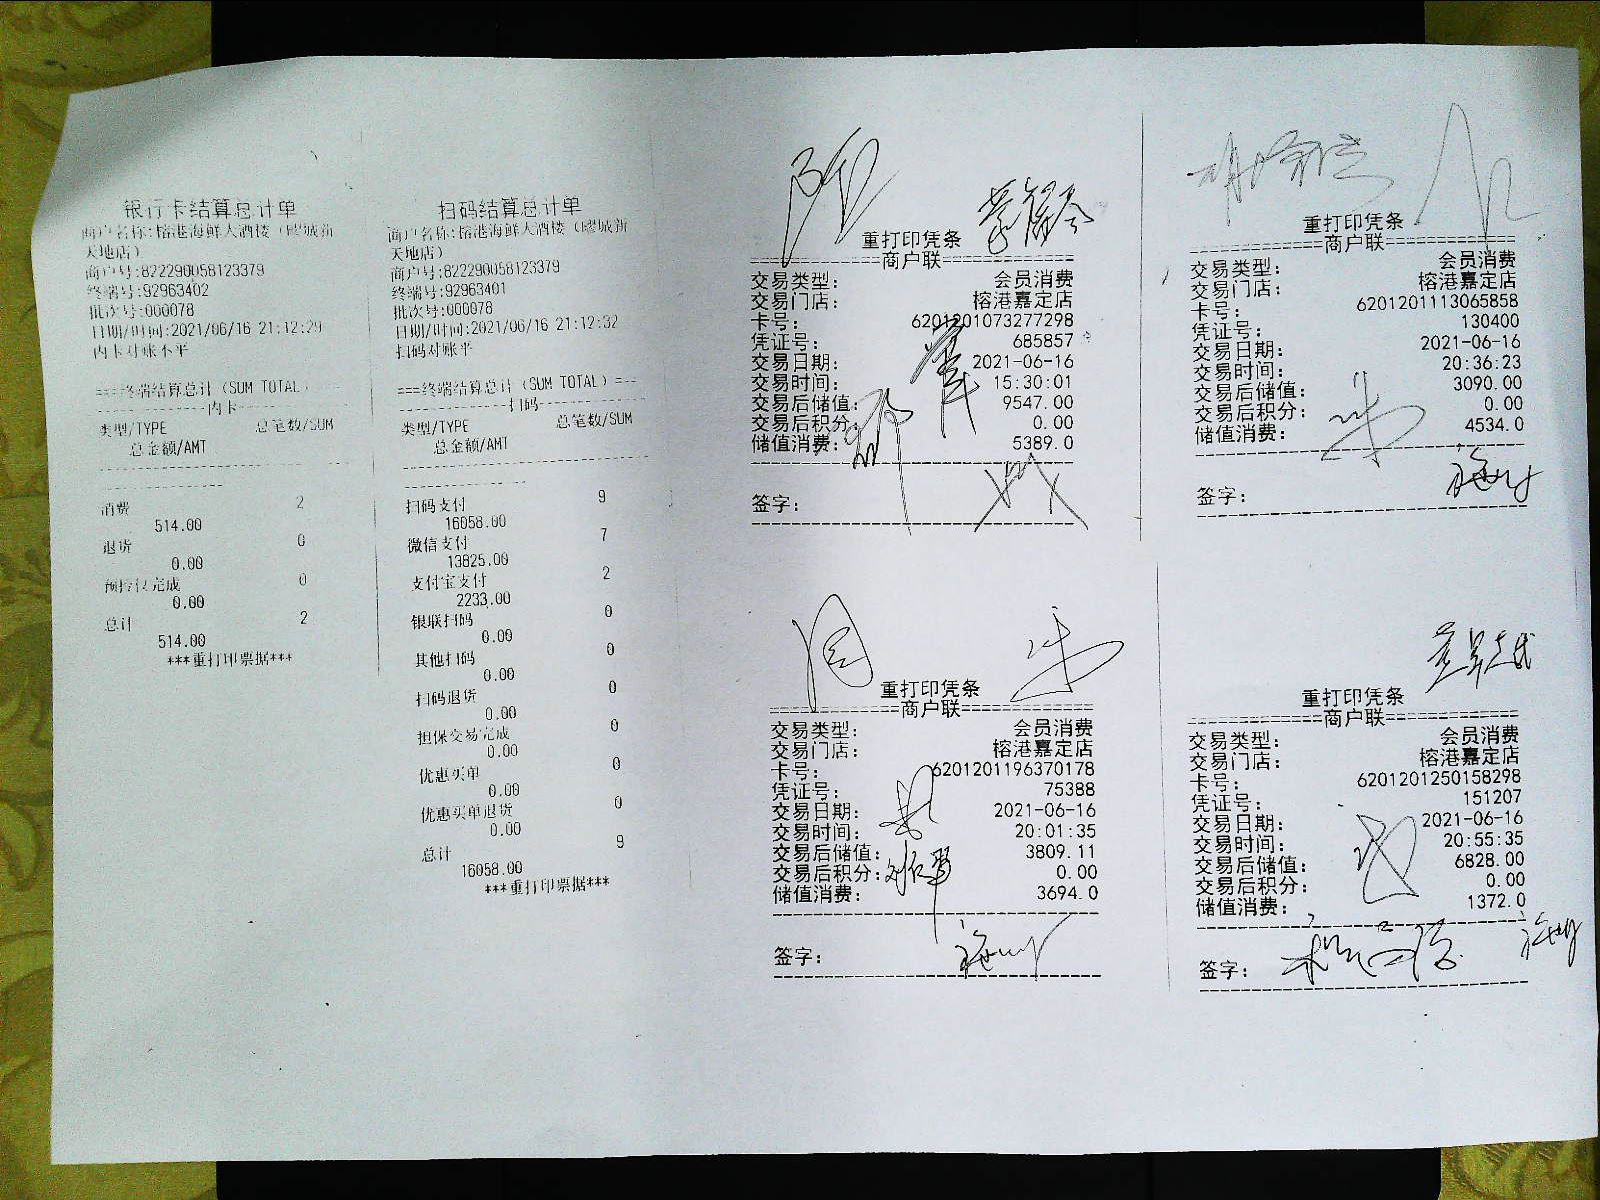 银行卡结算总计单
商户名称:榕港海鲜大酒楼（疁城新
天地店）
商户号:822290058123379
终端号:92963402
批次号:000078
日期/时间:2021/06/16 21:12:29
内卡对账不平
===终端结算总计（SUM TOTAL）
内卡
类型/TYPE 总笔数/SUM
总金额/AMT
消费 2
514.00
退货 0
0.00
预授权完成 0
0.00
总计 2
514.00
***重打印票据***
扫码结算总计单
商户名称:榕港海鲜大酒楼（疁城新
天地店）
商户号:822290058123379
终端号:92963401
批次号:000078
日期/时间:2021/06/16 21:12:32
扫码对账平
===终端结算总计（SUM TOTAL）===
扫码
类型/TYPE 总笔数/SUM
总金额/AMT
扫码支付 9
16058.00
微信支付 7
13825.00
支付宝支付 2
2233.00
银联扫码 0
0.00
其他扫码 0
0.00
扫码退货 0
0.00
担保交易完成 0
0.00
优惠买单 0
0.00
优惠买单退货 0
0.00
总计 9
16058.00
***重打印票据***
重打印凭条
商户联
交易类型: 会员消费
交易门店: 榕港嘉定店
卡号: 6201201073277298
凭证号: 685857
交易日期: 2021-06-16
交易时间: 15:30:01
交易后储值: 9547.00
交易后积分: 0.00
储值消费: 5389.0
签字:
重打印凭条
商户联
交易类型: 会员消费
交易门店: 榕港嘉定店
卡号: 6201201113065858
凭证号: 130400
交易日期: 2021-06-16
交易时间: 20:36:23
交易后储值: 3090.00
交易后积分: 0.00
储值消费: 4534.0
签字:
重打印凭条
商户联
交易类型: 会员消费
交易门店: 榕港嘉定店
卡号: 6201201196370178
凭证号: 75388
交易日期: 2021-06-16
交易时间: 20:01:35
交易后储值: 3809.11
交易后积分: 0.00
储值消费: 3694.0
签字:
重打印凭条
商户联
交易类型: 会员消费
交易门店: 榕港嘉定店
卡号: 6201201250158298
凭证号: 151207
交易日期: 2021-06-16
交易时间: 20:55:35
交易后储值: 6828.00
交易后积分: 0.00
储值消费: 1372.0
签字: